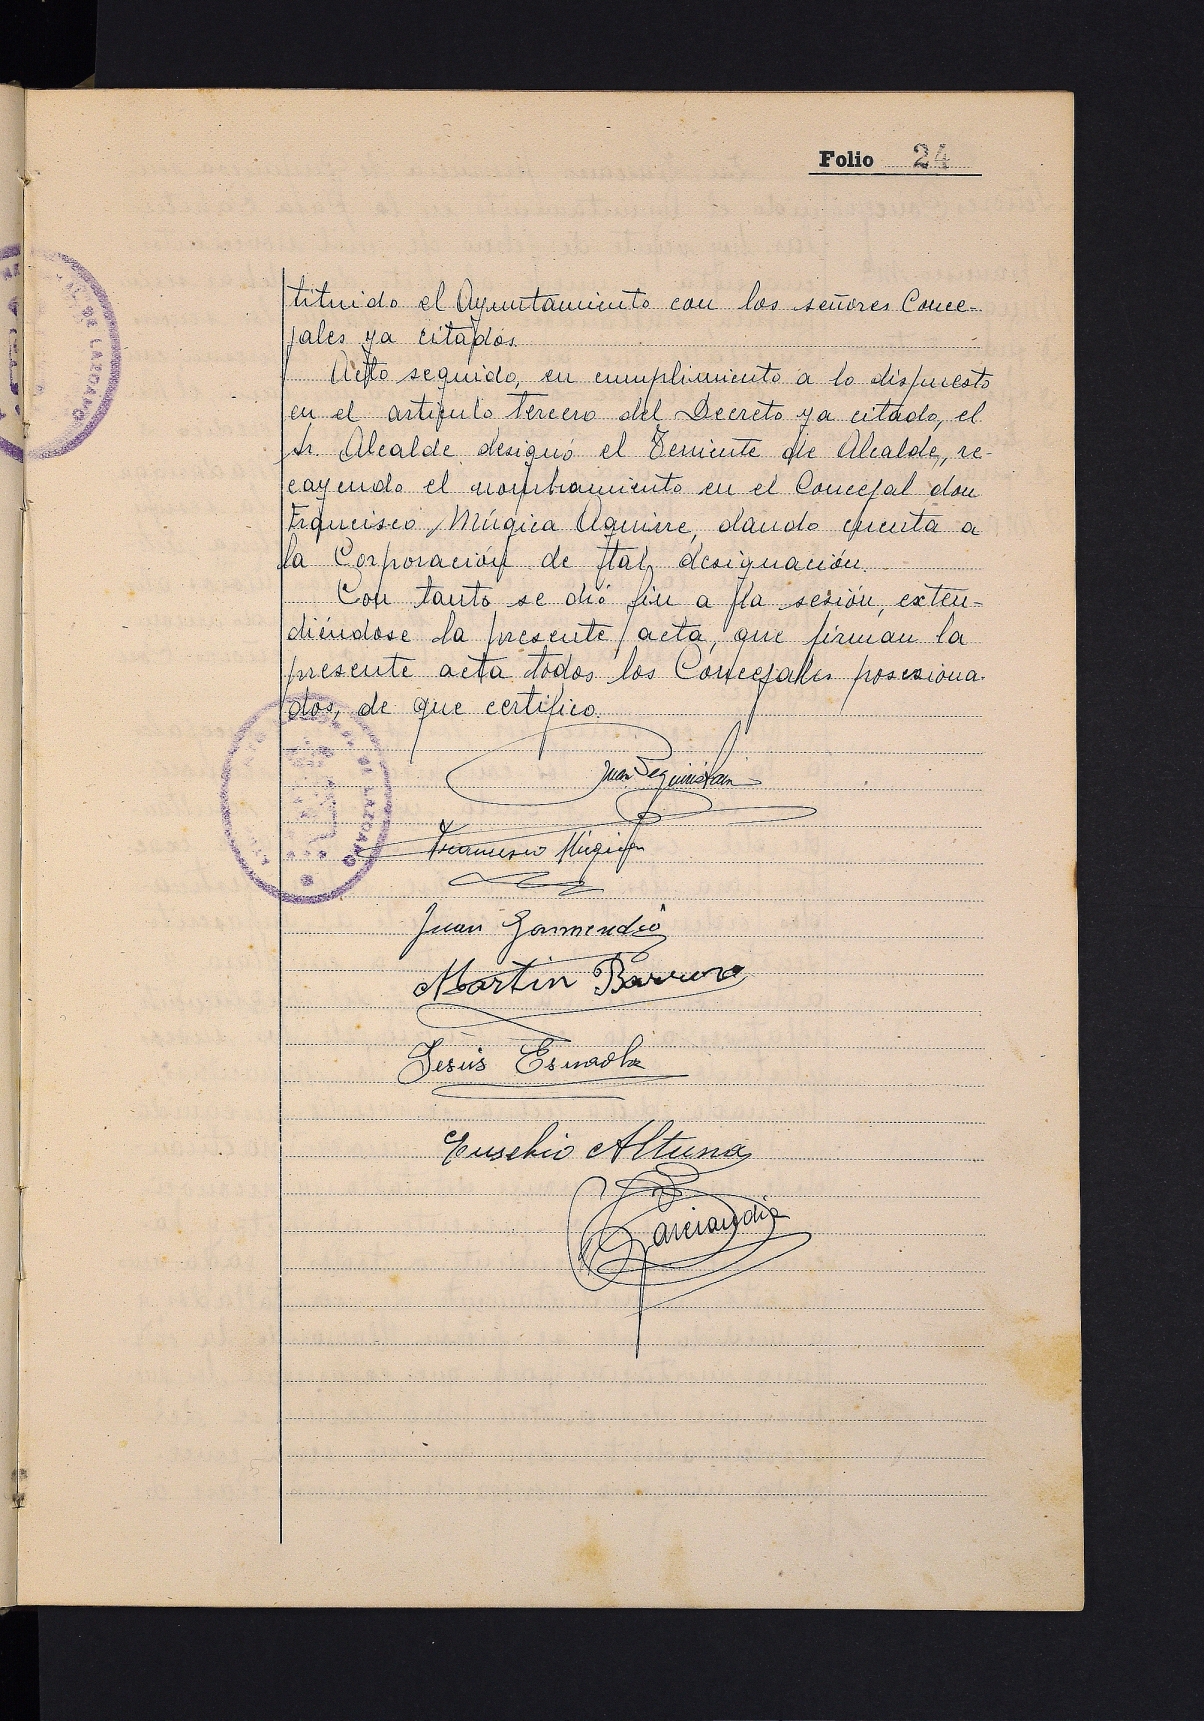 Folio 24
tituido el Ayuntamiento con los señores Conce-
jales ya citados.
Acto seguido, en cumplimiento a lo dispuesto
en el artículo tercero del Decreto ya citado, el
Sr. Alcalde designó el Teniente de Alcalde, re-
cayendo el nombramiento en el Concejal don
Francisco Múgica Aguirre, dando cuenta a
la Corporación de tal designación.
Con tanto se dió fin a la sesión, exten-
diéndose la presente acta, que firman la
presente acta todos los Concejales posesiona-
dos, de que certifico.
Juan Peguiristain
Francisco Múgica
Juan Garmendia
Martin Barrena
Jesús Esnaola
Eusebio Altuna
Garciandia
DE LAZCANO
DE LAZCANO